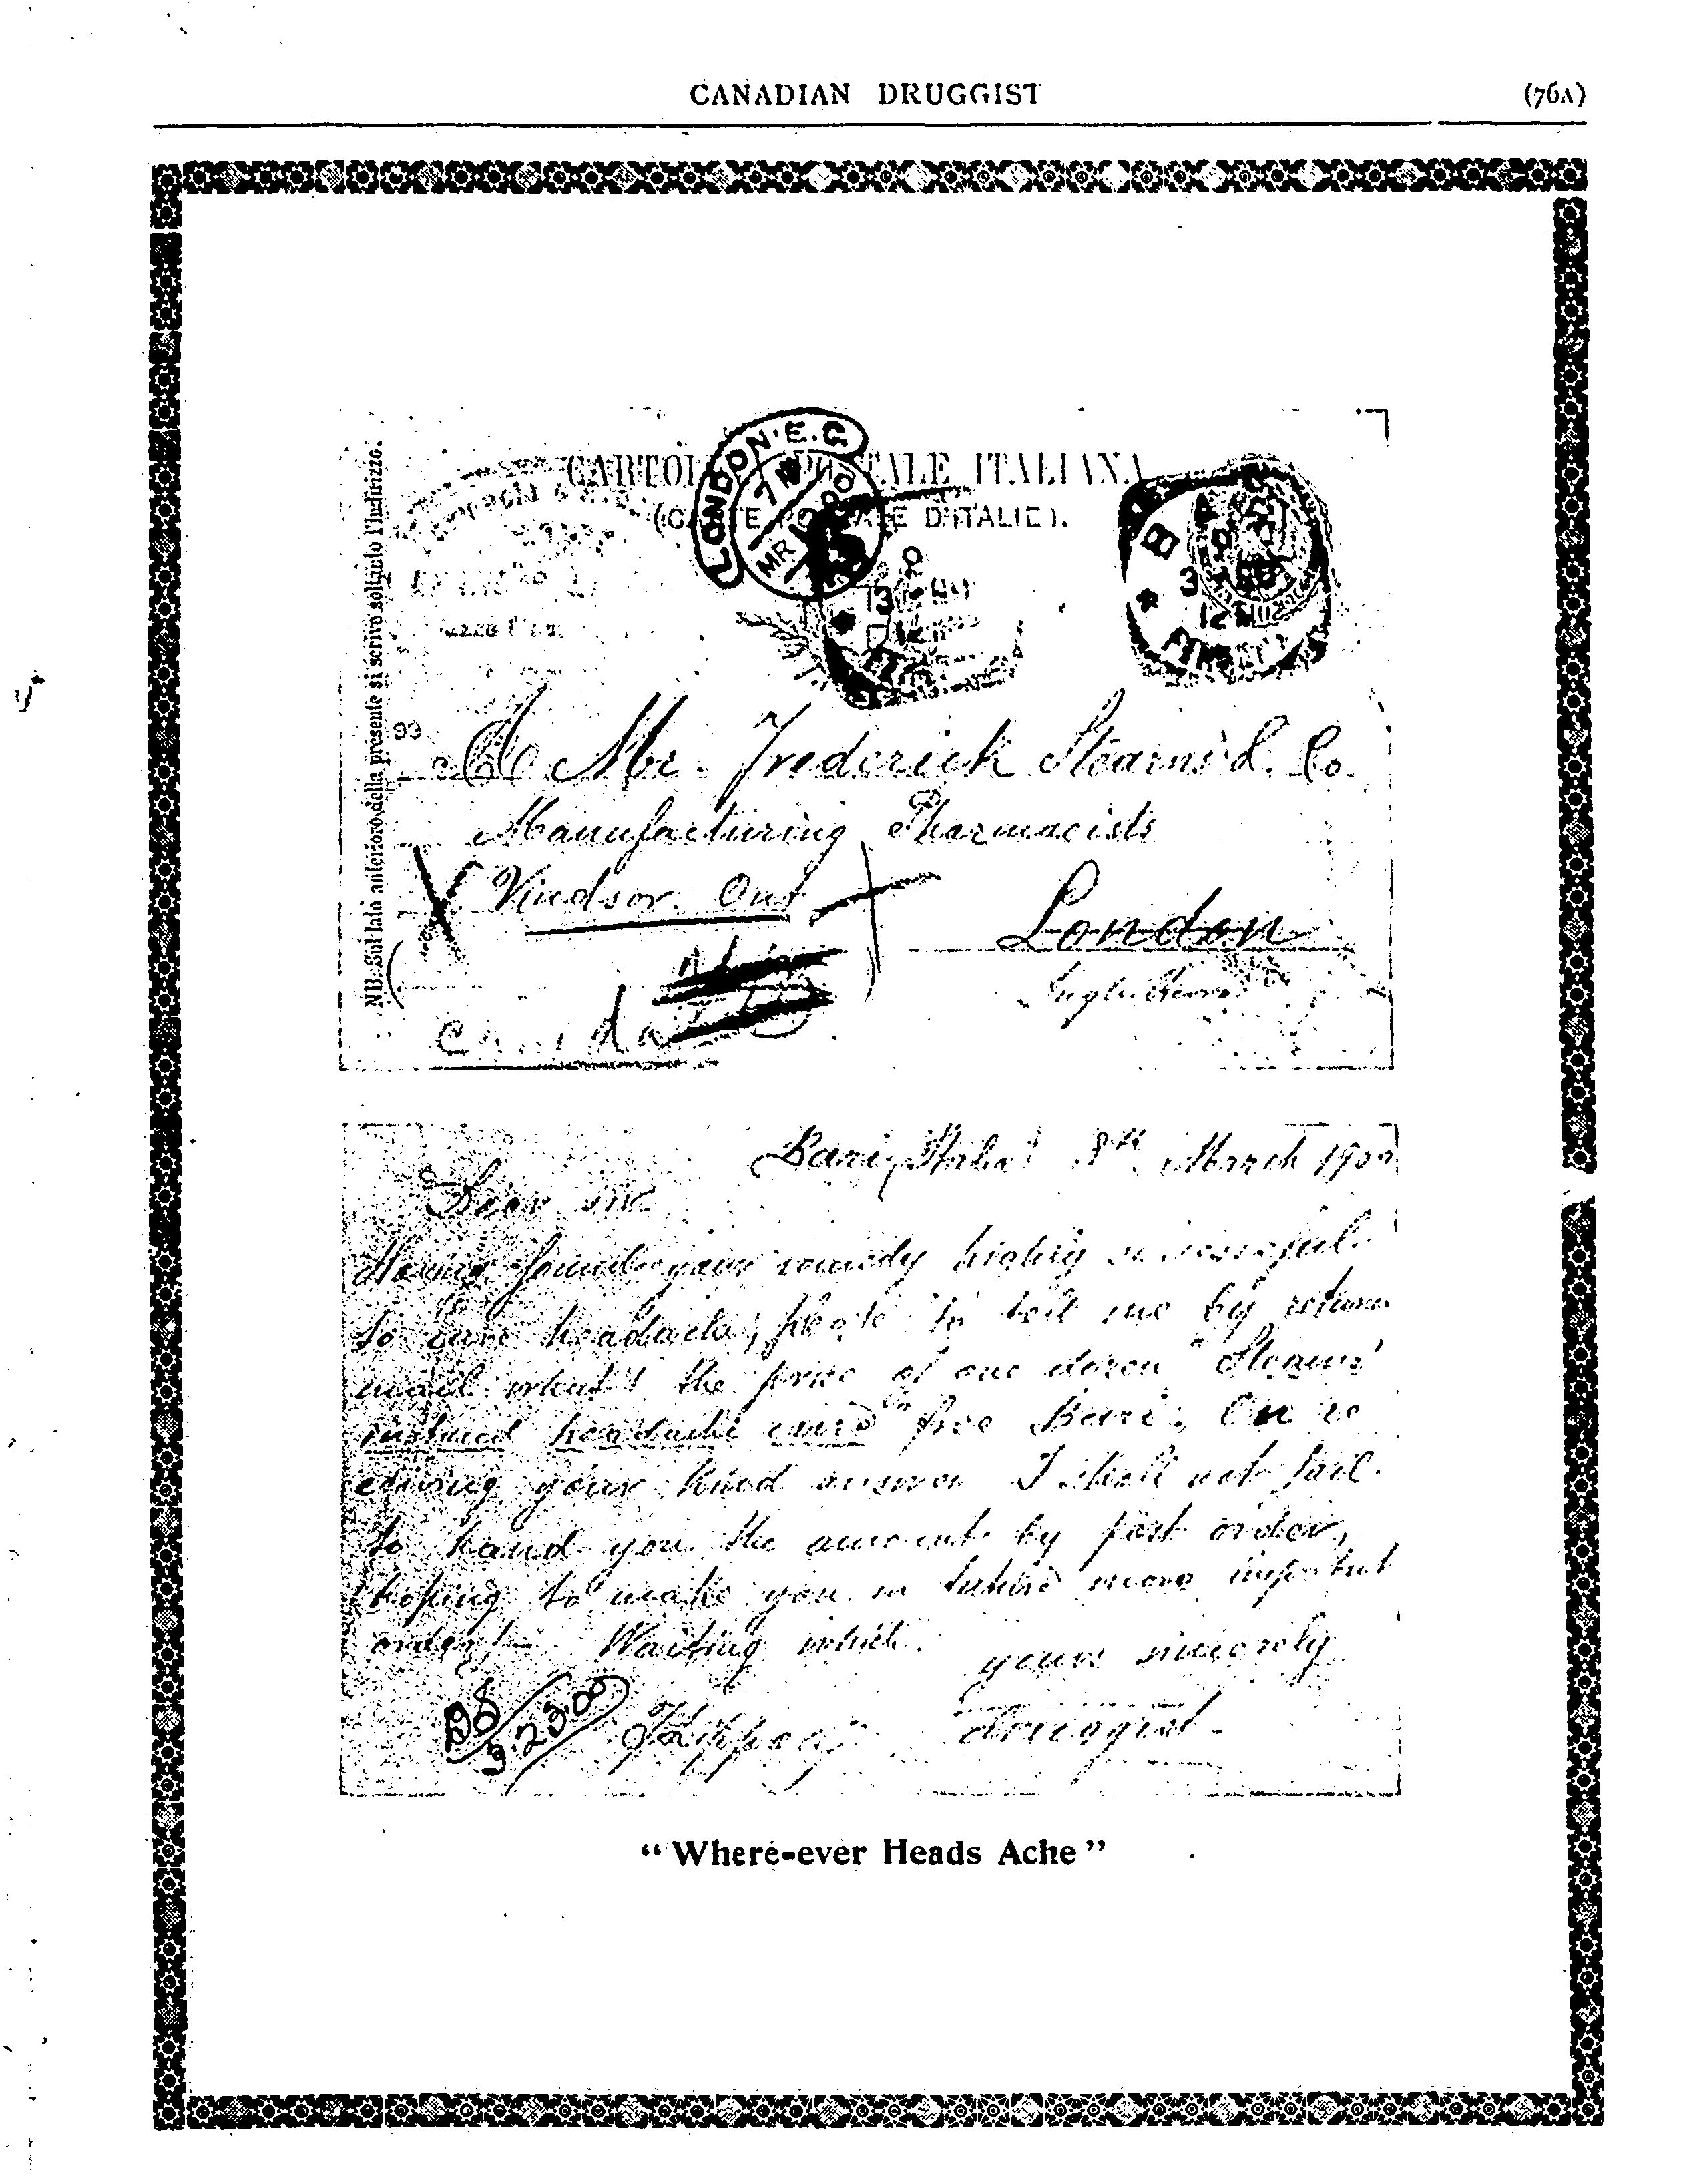 CANADIAN DRUGGIST (76A)
LONDON. E.C
7 MR 00
CARTOL POSTALE ITALIANA
(CARTE POSTALE D'ITALIE).
BARI
NB. Sul lato anteriore della presente si scrive soltanto l'indirizzo.
93
Mr. Frederick Stearns & Co.
Manufacturing Pharmacists
Windsor. Ont
London
Canada
Bari, Italia 8th March 1900
Dear Sir
Having found your remedy highly successful
to cure headache, please to tell me by return
mail what's the price of one dozen "Stearns'
headache cure" free Bari. On re
ceiving your kind answer I shall not fail
to hand you the amount by post order,
hoping to make you in future more important
order. — Waiting which.
yours sincerely
3.23.00
Druggist
"Where-ever Heads Ache"